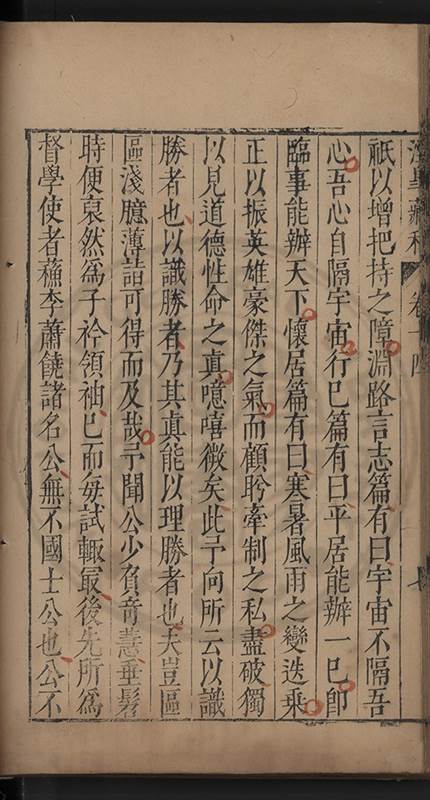 卷十四
祇以增把持之障淵路言志篇有曰宇宙不隔吾
心吾心自隔宇宙行巳篇有曰平居能辦一巳卽
臨事能辦天下懷居篇有曰寒暑風雨之變迭乘
正以振英雄豪傑之氣而顧盻牽制之私盡破獨
以見道德性命之眞噫嘻微矣此予向所云以識
勝者也以識勝者乃其眞能以理勝者也夫豈區
區淺臆薄詣可得而及哉予聞公少負竒慧垂髫
時便裒然爲子衿領袖巳而每試輙冣後先所爲
督學使者蘓李蕭饒諸名公無不國士公也公不